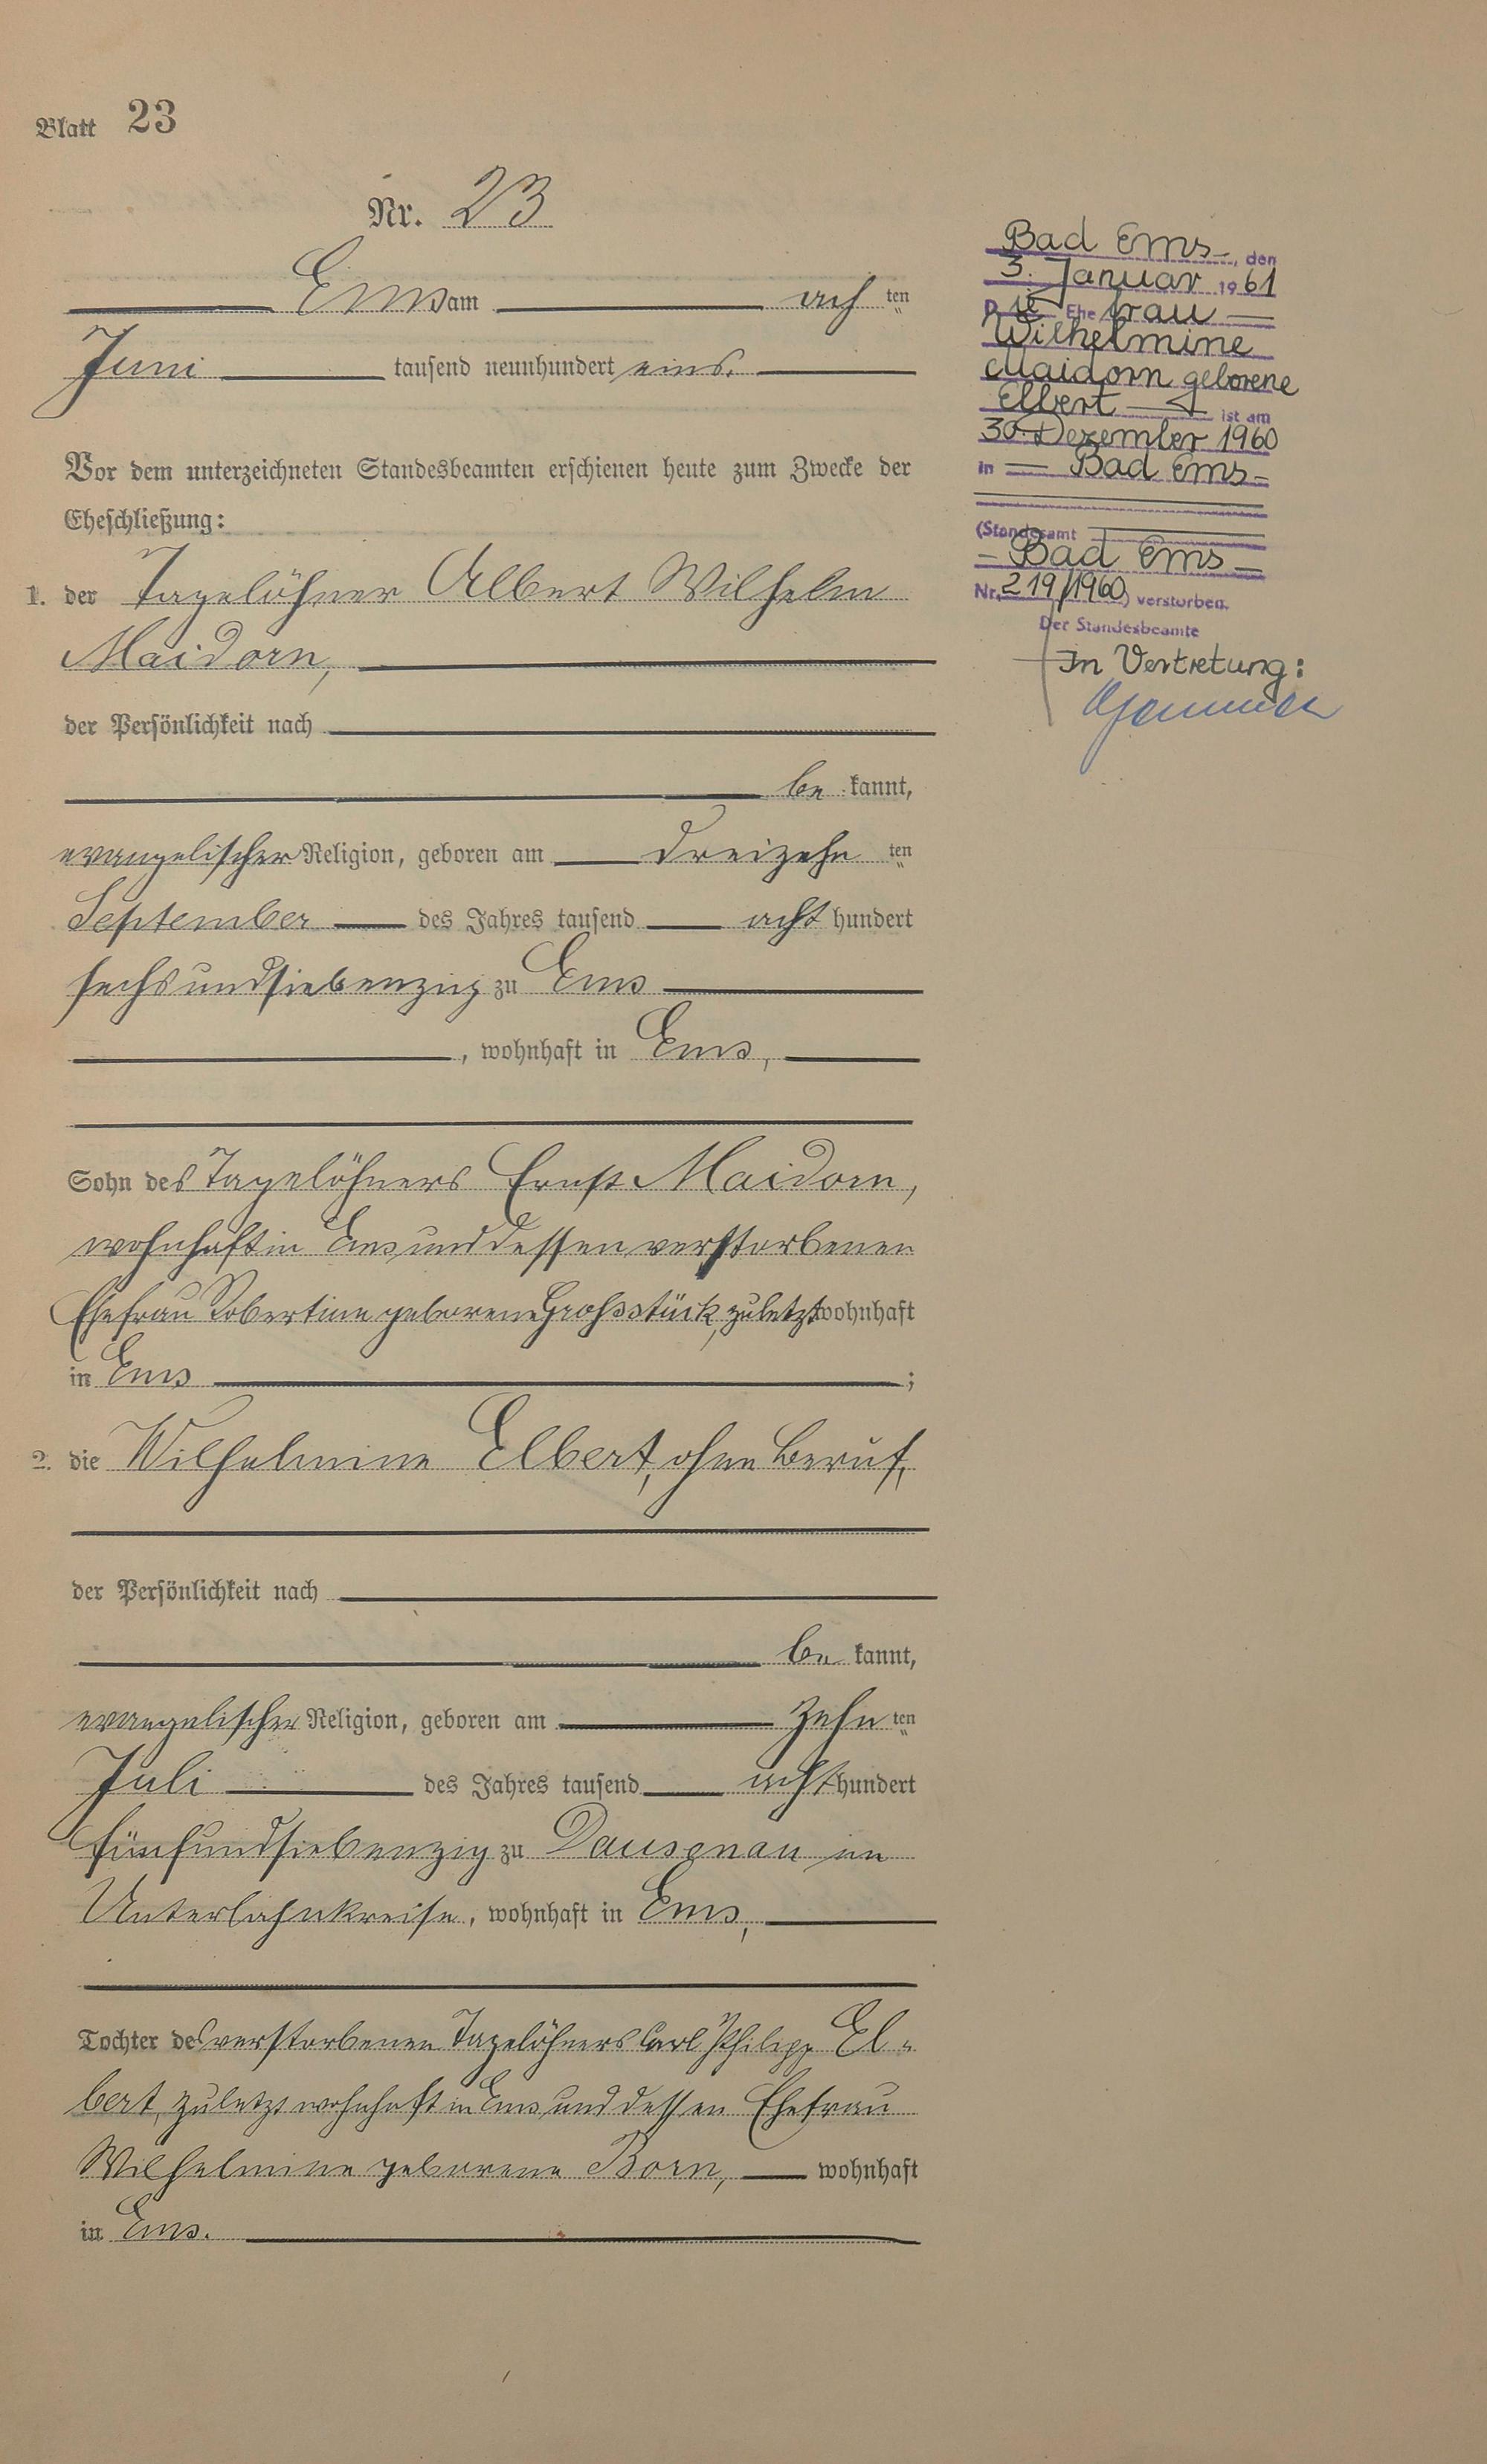 Blatt 23
Nr. 23
Ems am ach ten
Juni tausend neunhundert eins.
Vor dem unterzeichneten Standesbeamten erschienen heute zum Zwecke der
Eheschließung:
1. der Tagelöhner Albert Wilhelm
Maidorn,
der Persönlichkeit nach
be kannt,
evangelischer Religion, geboren am dreizehn ten
September des Jahres tausend acht hundert
sechsundsiebenzig zu Ems
, wohnhaft in Ems,
Sohn des Tagelöhners Ernst Maidorn,
wohnhaft in Ems und dessen verstorbenen
Ehefrau Robertine geborene Grossstück, zuletzt wohnhaft
in Ems ;
2. die Wilhelmine Elbert, ohne Beruf,
der Persönlichkeit nach
be kannt,
evangelischer Religion, geboren am zehn ten
Juli des Jahres tausend acht hundert
fünfundsiebenzig zu Dausenau im
Unterlahnkreise, wohnhaft in Ems,
Tochter des verstorbenen Tagelöhners Carl Philipp El-
bert, zuletzt wohnhaft in Ems und dessen Ehefrau
Wilhelmine geborene Born, wohnhaft
in Ems.
Bad Ems, den
3. Januar 1961
Die Ehefrau
Wilhelmine
Maidorn geborene
Elbert ist am
30. Dezember 1960
in Bad Ems
(Standesamt
Bad Ems
Nr. 219/1960) verstorben.
Der Standesbeamte
In Vertretung: